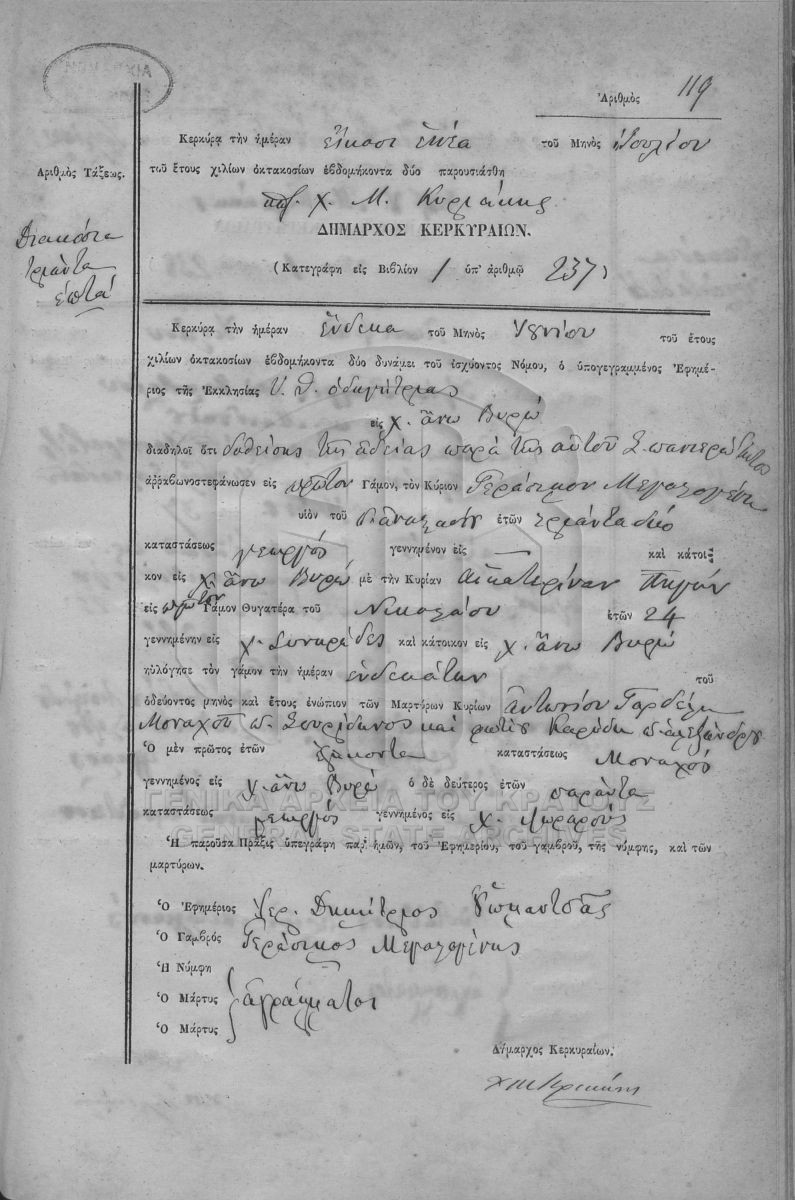 Ἀριθμὸς 119
Κερκύρα τὴν ἡμέραν εἴκοσι ἐννέα τοῦ Μηνὸς Ἰουλίου
Ἀριθμὸς Τάξεως.
τοῦ ἔτους χιλίων ὀκτακοσίων ἑβδομήκοντα δύο παρουσιάσθη
χ. Μ. Κυριάκης
Διακόσια
τριάντα
ἑπτά
ΔΗΜΑΡΧΟΣ ΚΕΡΚΥΡΑΙΩΝ.
(Κατεγράφη εἰς Βιβλίον 1 ὑπ' ἀριθμῷ 237)
Κερκύρα τὴν ἡμέραν ἕνδεκα τοῦ Μηνὸς Ἰουνίου τοῦ ἔτους
χιλίων ὀκτακοσίων ἑβδομήκοντα δύο δυνάμει τοῦ ἰσχύοντος Νόμου, ὁ ὑπογεγραμμένος Ἐφημέ-
ριος τῆς Ἐκκλησίας Υ. Θ. ὁδηγήτριας
εἰς χ. ἄνω Βυρῷ
διαδηλοῖ ὅτι δοθείσης τῆς ἀδείας παρὰ τῆς αὐτοῦ Σ. πανιερώτητος
ἀῤῥαβωνοστεφάνωσεν εἰς πρῶτον Γάμον, τὸν Κύριον Γεράσιμον Μεγαλογένη
υἱὸν τοῦ ἐτῶν τριάντα δύο
καταστάσεως γεωργός γεννημένον εἰς — καὶ κάτοι-
κον εἰς χ. ἄνω Βυρῷ μὲ τὴν Κυρίαν Αἰκατερίναν Πηγήν
εἰς πρῶτον Γάμον Θυγατέρα τοῦ Νικολάου ἐτῶν 24
γεννημένην εἰς χ. Συναράδες καὶ κάτοικον εἰς χ. ἄνω Βυρῷ
ηὐλόγησε τὸν γάμον τὴν ἡμέραν ἑνδεκάτην τοῦ
ὁδεύοντος μηνὸς καὶ ἔτους ἐνώπιον τῶν Μαρτύρων Κυρίων ἀντωνίου Γαρδέλη
Μοναχοῦ π. Σπυρίδωνος καὶ φωτίς Καρύδη π. ἀλεξάνδρου
Ὁ μὲν πρῶτος ἐτῶν ἑξήκοντα καταστάσεως Μοναχός
γεννημένος εἰς χ. ἄνω Βυρῷ ὁ δὲ δεύτερος ἐτῶν σαράντα
ΓΕΝΙΚΑ ΑΡΧΕΙΑ ΤΟΥ ΚΡΑΤΟΥΣ
καταστάσεως γεωργός γεννημένος εἰς χ.
GENERAL STATE ARCHIVES
Ἡ παροῦσα Πρᾶξις ὑπεγράφη παρ' ἡμῶν, τοῦ Ἐφημερίου, τοῦ γαμβροῦ, τῆς νύμφης, καὶ τῶν
μαρτύρων.
Ὁ Ἐφημέριος Ἱερ. Δημήτριος
Ὁ Γαμβρός Γεράσιμος Μεγαλογένης
Ἡ Νύμφη
Ὁ Μάρτυς ἀγράμματοι
Ὁ Μάρτυς
Δήμαρχος Κερκυραίων.